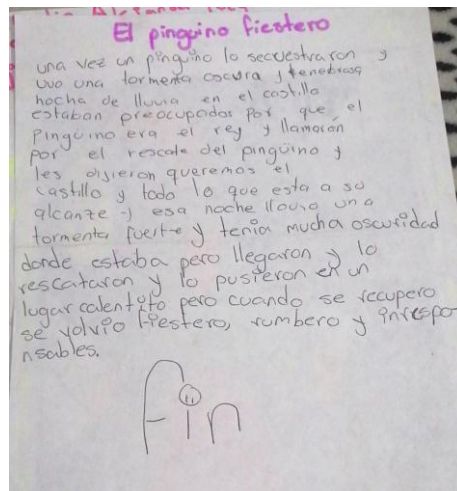 El pinguino fiestero
una vez un pinguino lo secuestraron y
uvo una tormenta oscura y tenebrosa
nocha de lluvia en el castillo
estaban preocupados por que el
Pinguino era el rey y llamaron
por el rescate del pinguino y
les dijieron queremos el
castillo y todo lo que esta a su
alcanze y esa noche llovio una
tormenta fuerte y tenia mucha oscuridad
donde estaba pero llegaron y lo
rescataron y lo pusieron en un
lugar calentito pero cuando se recupero
se volvio fiestero, rumbero y inrespo
nsables.
Fin